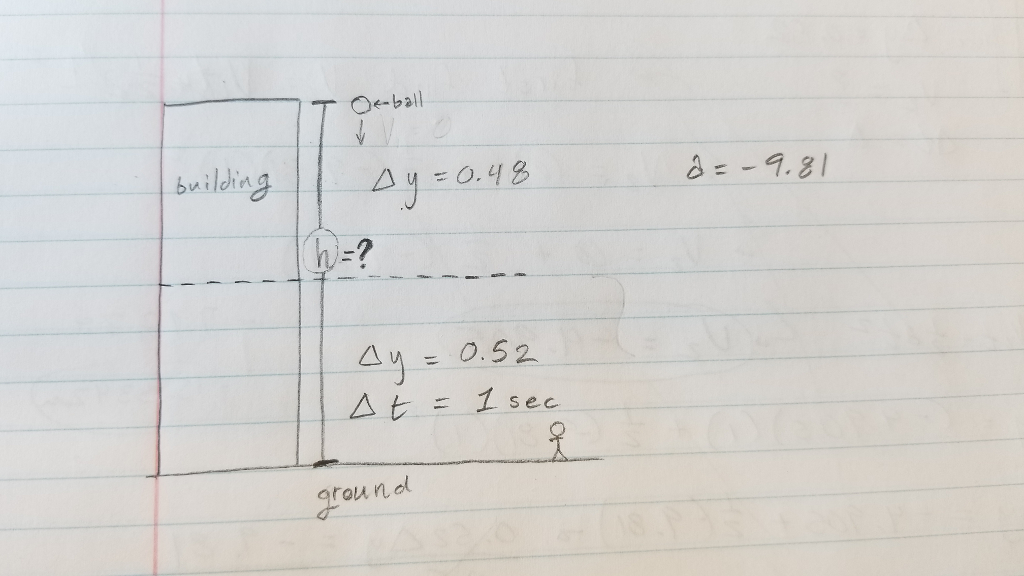 ←ball
building
Δy = 0.48
a = -9.81
h =?
Δy = 0.52
Δt = 1 sec
ground